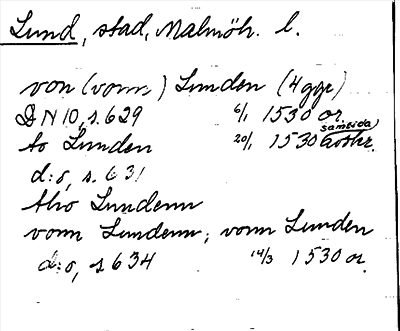 Lund, stad, Malmöh. l.
von (vonn) Lunden (4 ggr)
DN 10, s. 629 6/1 1530 or.
to Lunden 20/1 1530 samtida avskr.
d:o, s. 631
tho Lundenn
vonn Lundenn; vonn Lunden
d:o, s 634 14/3 1530 or.